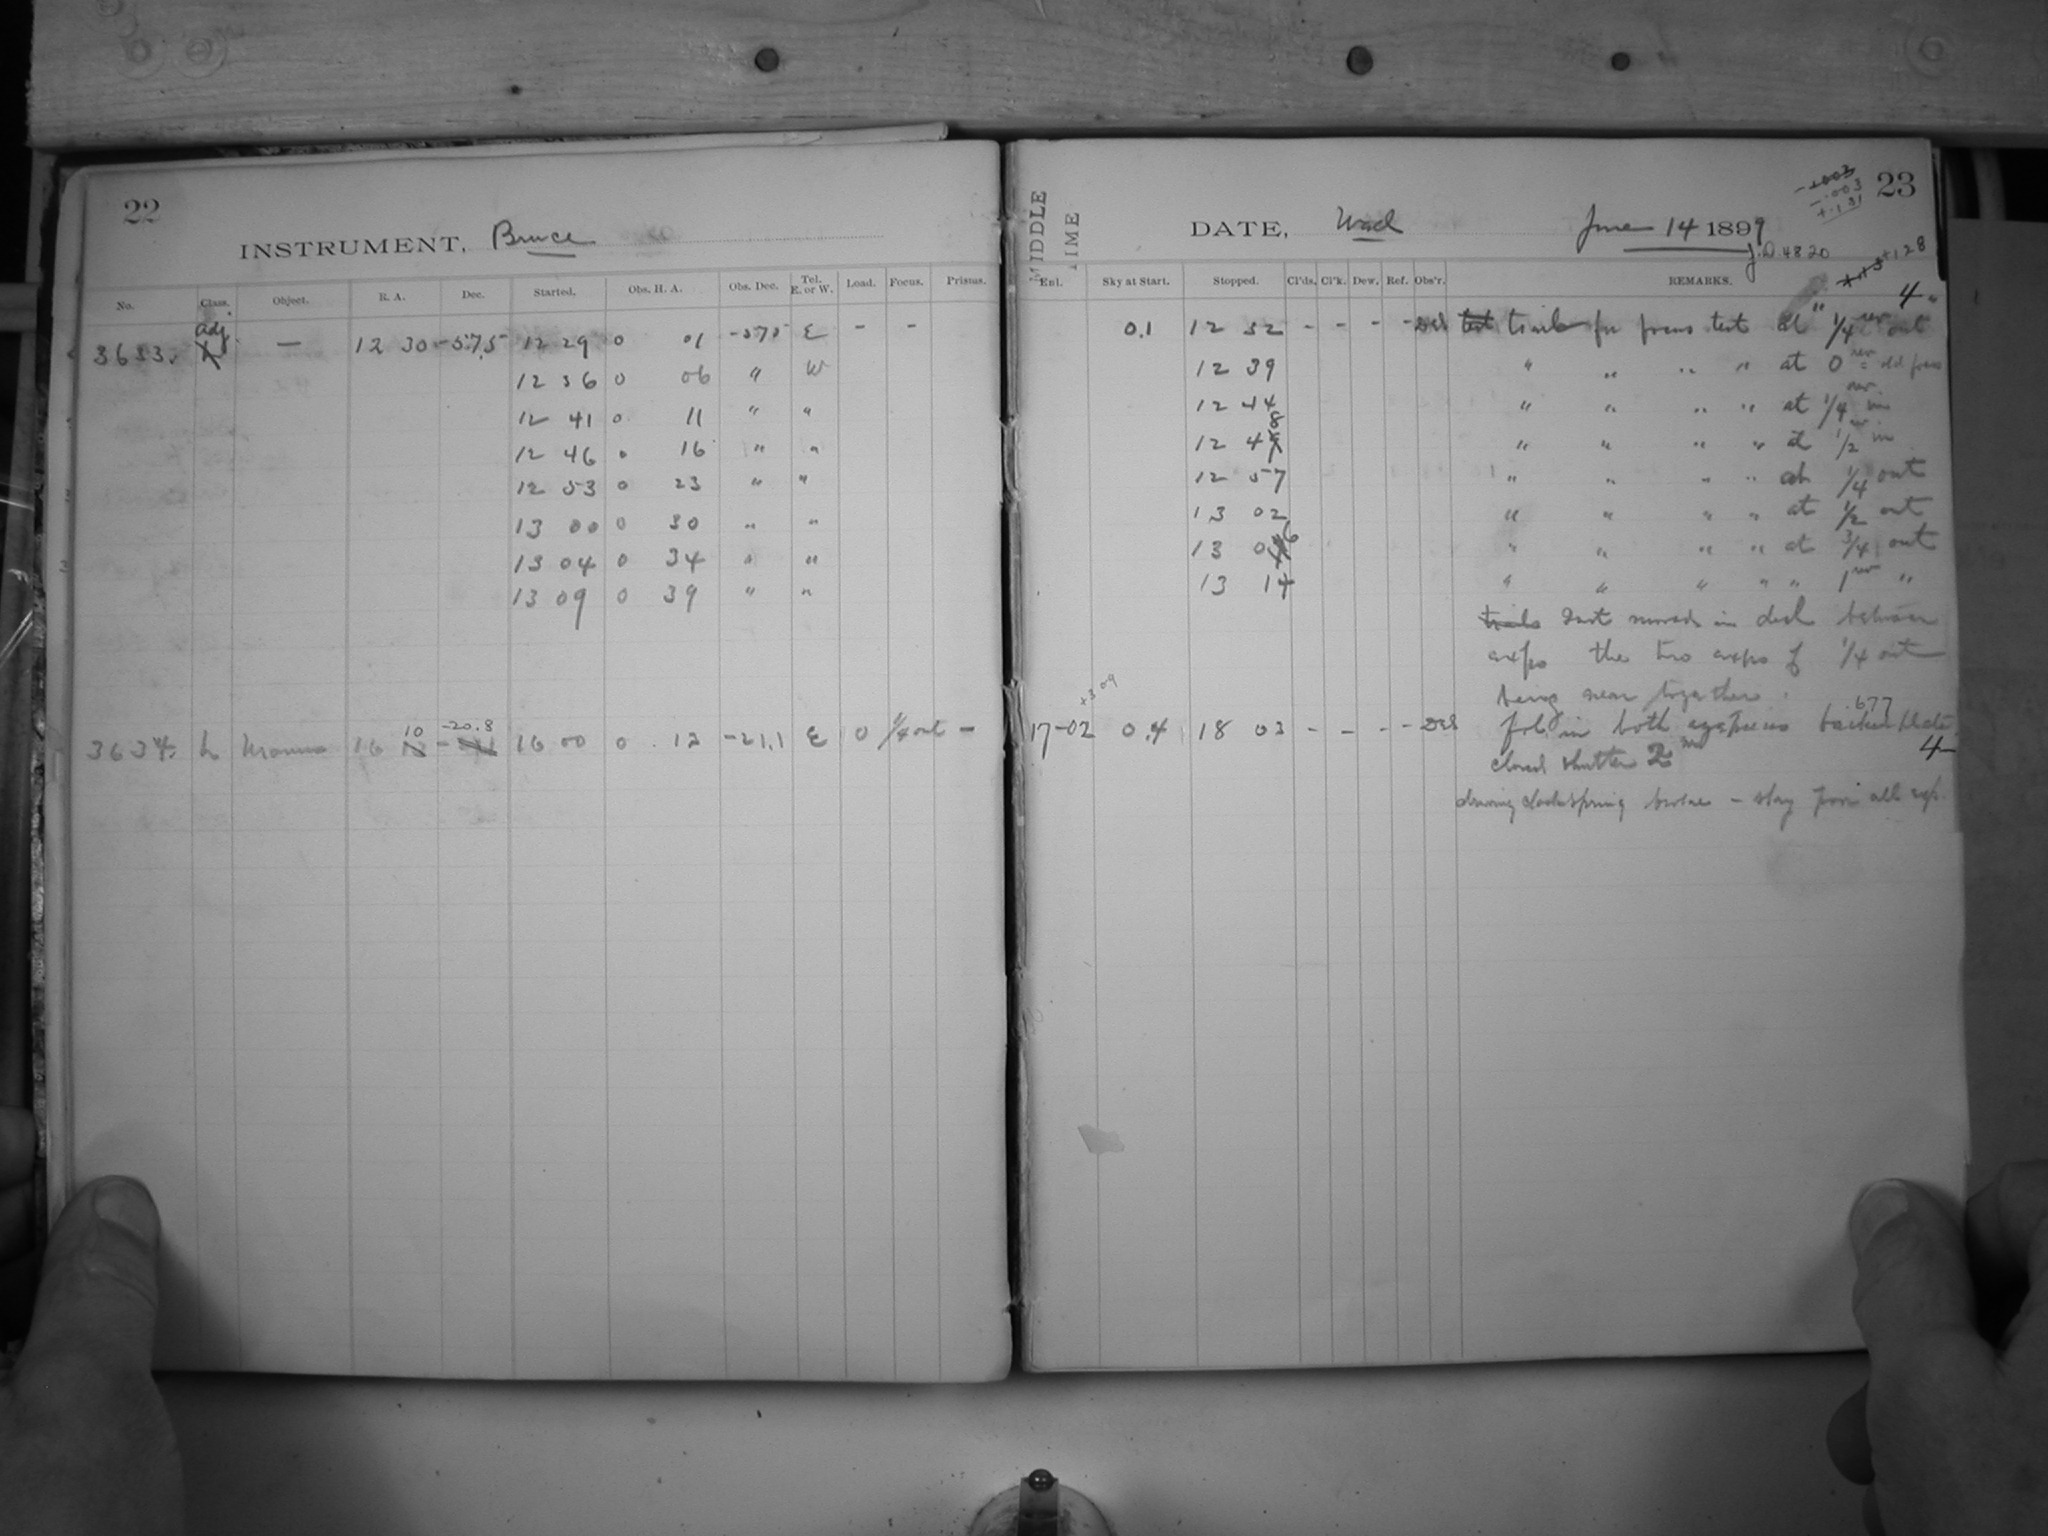 22
INSTRUMENT, Bruce
No. Class. Object. R. A. Dec. Started. Obs. H. A. Obs. Dec. Tel. E. or W. Load. Focus. Prisms.
3633. adj. — 12 30 -57.5 12 29 0 01 -57.5 E - -
12 36 0 06 " W
12 41 0 11 " "
12 46 0 16 " "
12 53 0 23 " "
13 00 0 30 " "
13 04 0 34 " "
13 09 0 39 " "
10 -20.8
3634. L Uranus 16 16 00 0 12 -21.1 E 0 1/4 out —
23
MIDDLE TIME
DATE, Wed June 14 1899
-.003
+.131
J.D. 4820
+128
Enl. Sky at Start. Stopped. Cl'ds. Cl'k. Dew. Ref. Obs'r. REMARKS.
4"
0.1 12 32 - - - - trails for focus test at 1/4 rev out
12 39 " " " " at 0 rev = old focus
12 44 " " " " at 1/4 rev in
12 48 " " " " at 1/2 rev in
12 57 " " " " at 1/4 out
13 02 " " " " at 1/2 out
13 06 " " " " at 3/4 out
13 14 " " " " " 1 rev "
Inst moved in decl between
exps the two exps of 1/4 out
being near together.
+309
677
17-02 0.4 18 03 - - - - in both
closed shutter 2m 4
driving clock spring broke -